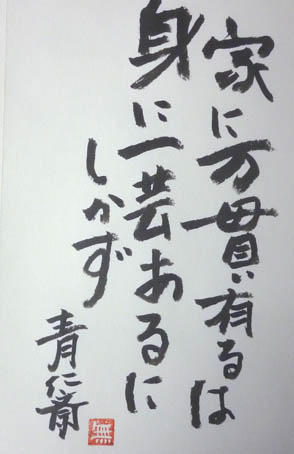 家に万貫有るは
身に一芸あるに
しかず
青仁斎
無